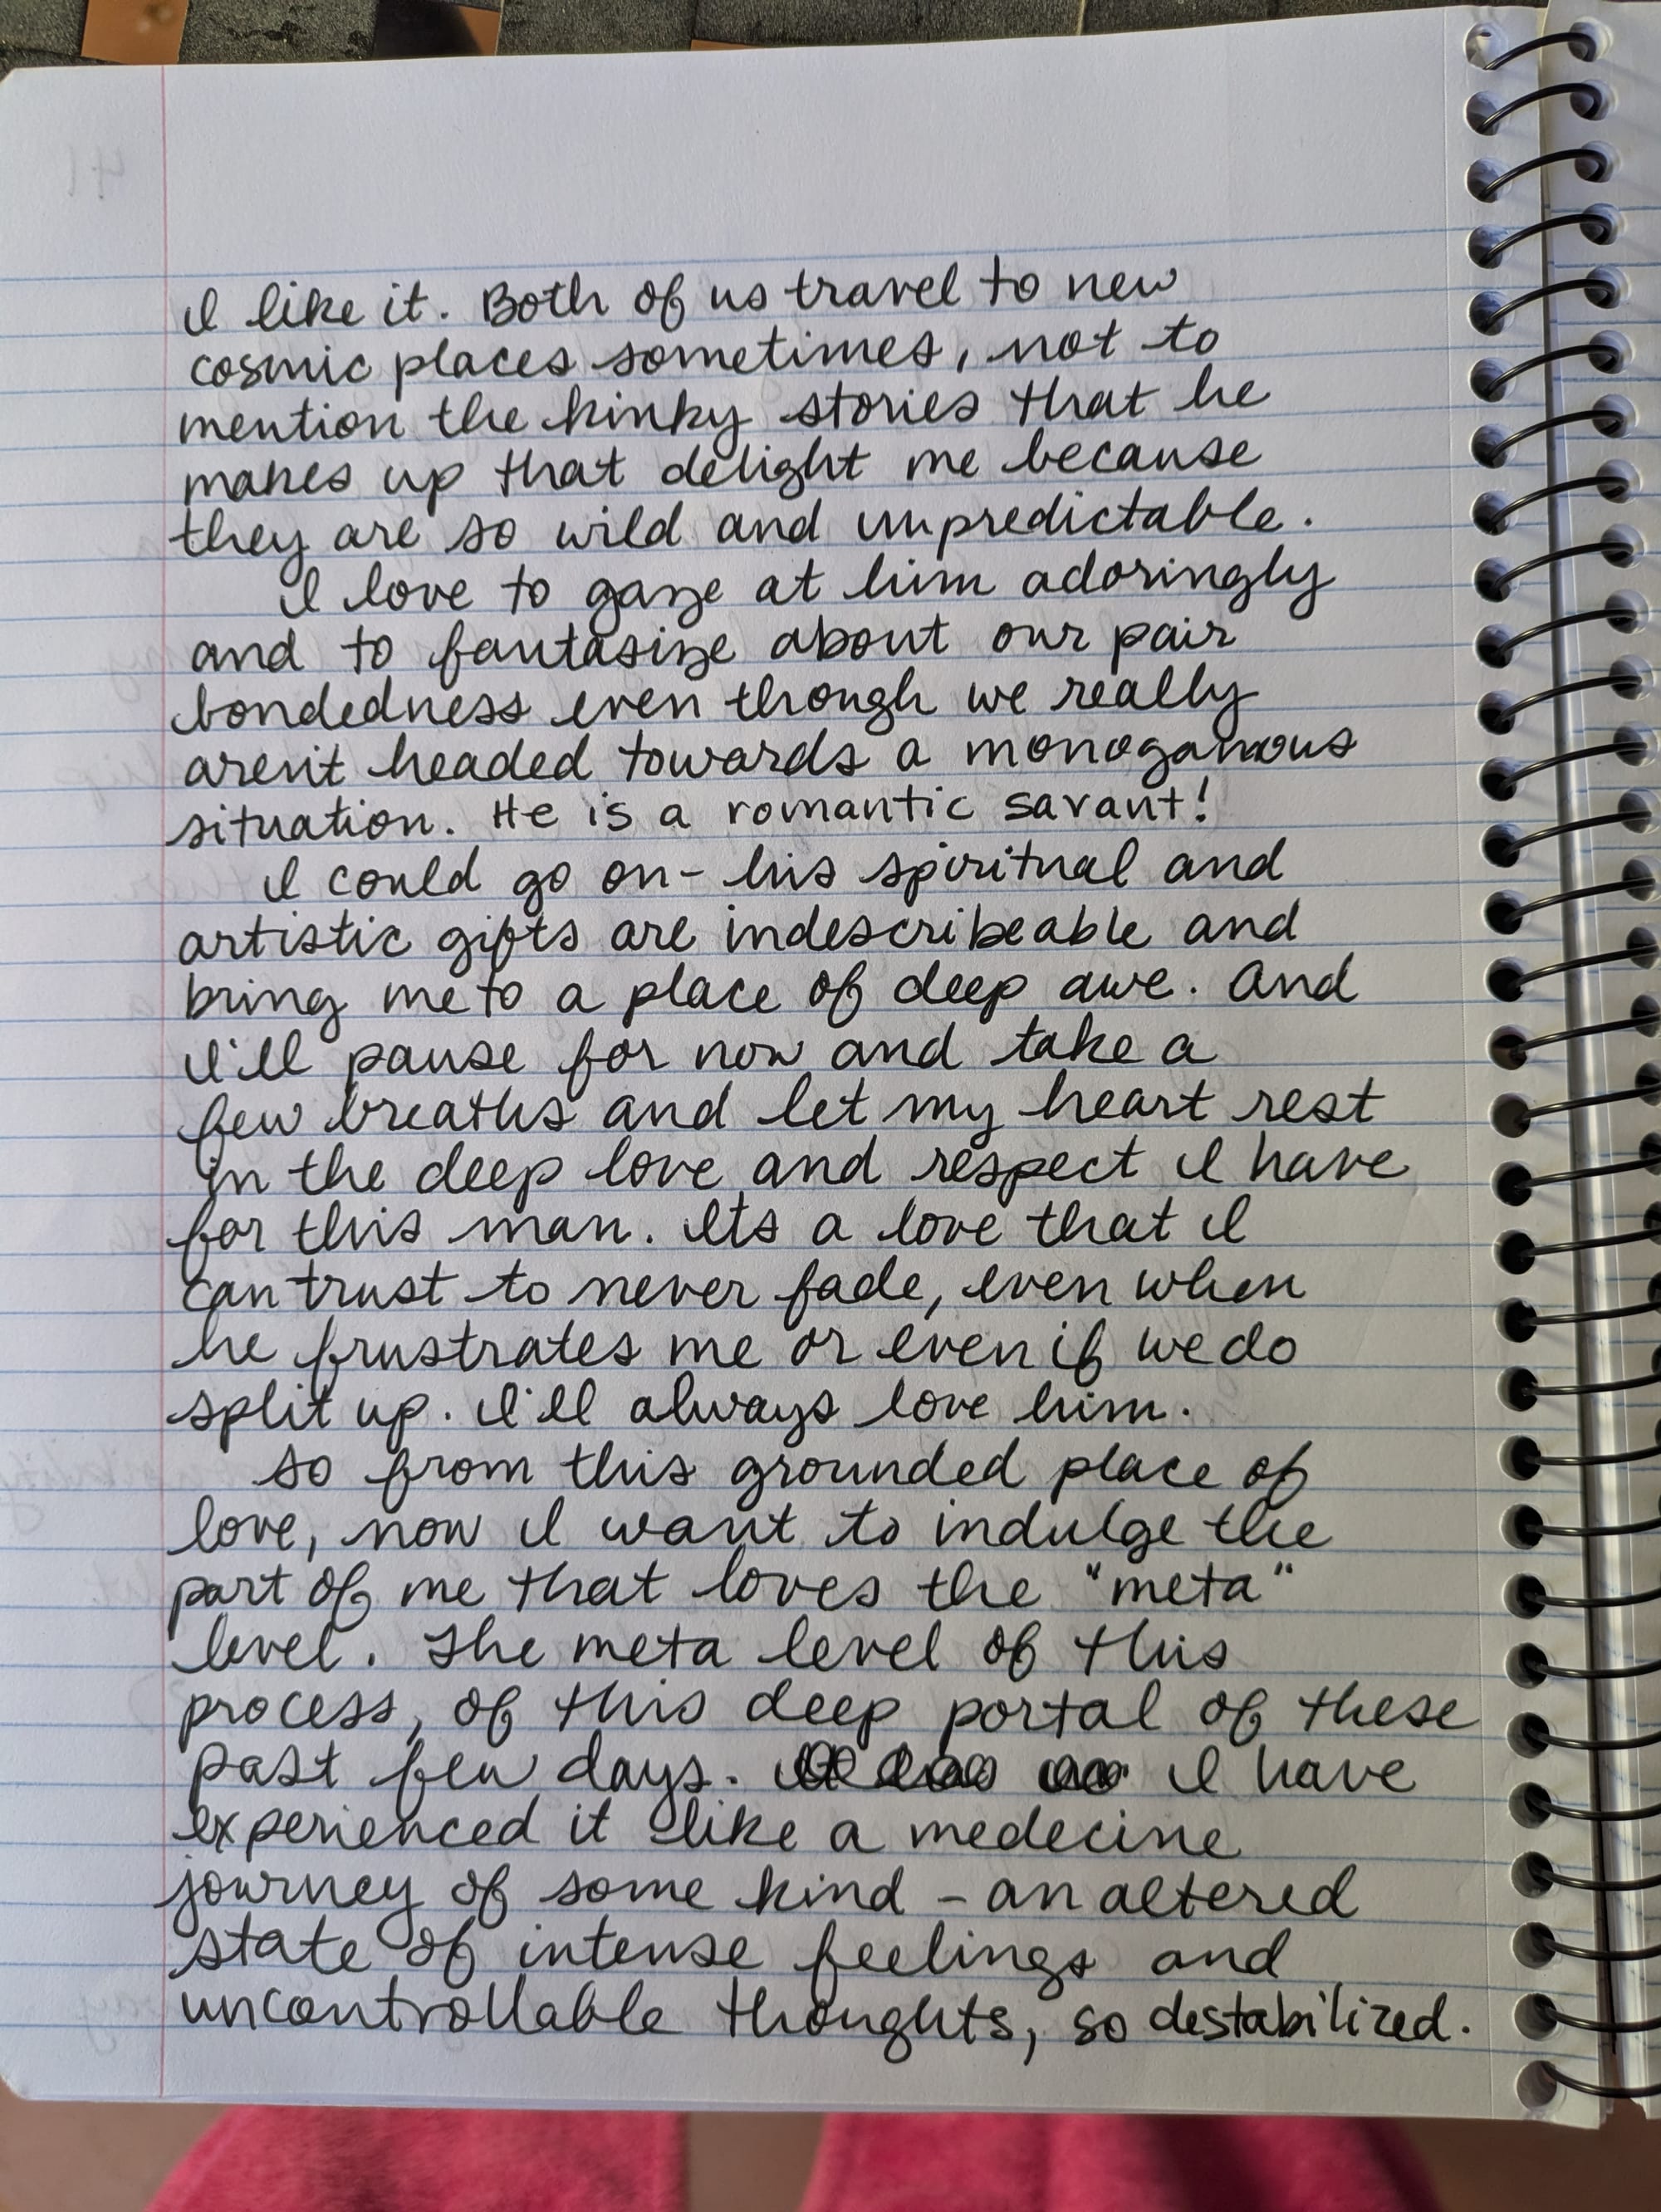 I like it. Both of us travel to new
cosmic places sometimes, not to
mention the kinky stories that he
makes up that delight me because
they are so wild and unpredictable.
I love to gaze at him adoringly
and to fantasize about our pair
bondedness even though we really
aren't headed towards a monogamous
situation. He is a romantic savant!
I could go on - his spiritual and
artistic gifts are indescribeable and
bring me to a place of deep awe. And
I'll pause for now and take a
few breaths and let my heart rest
in the deep love and respect I have
for this man. Its a love that I
can trust to never fade, even when
he frustrates me or even if we do
split up. I'll always love him.
So from this grounded place of
love, now I want to indulge the
part of me that loves the "meta"
level. The meta level of this
process, of this deep portal of these
past few days. I have
experienced it like a medecine
journey of some kind - an altered
state of intense feelings and
uncontrollable thoughts, so destabilized.